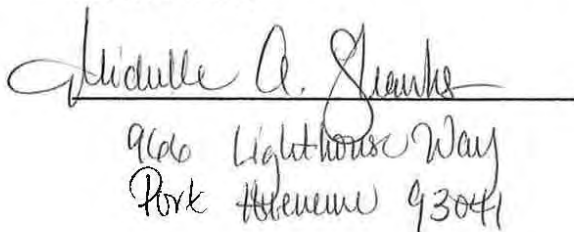 Michelle A. Shanks
966 Lighthouse Way
Port Hueneme 93041